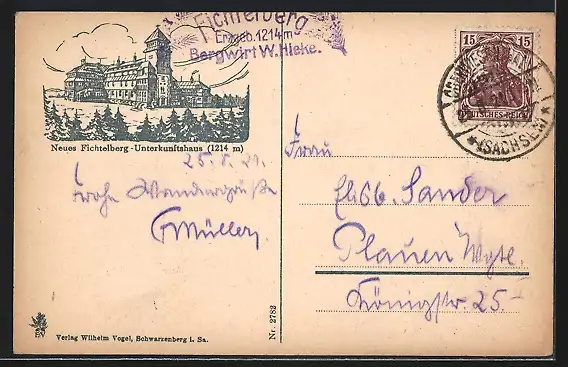 Fichtelberg
Erzgeb. 1214 m
Bergwirt W. Hieke.
15 15
DEUTSCHES REICH
(SACHSEN)
Neues Fichtelberg-Unterkunftshaus (1214 m)
25. 8. 21.
Frohe Wandergrüße
Müller
Frau
Elsb. Sander
Plauen Vgtl.
Königstr. 25
Nr. 2782
Verlag Wilhelm Vogel, Schwarzenberg i. Sa.